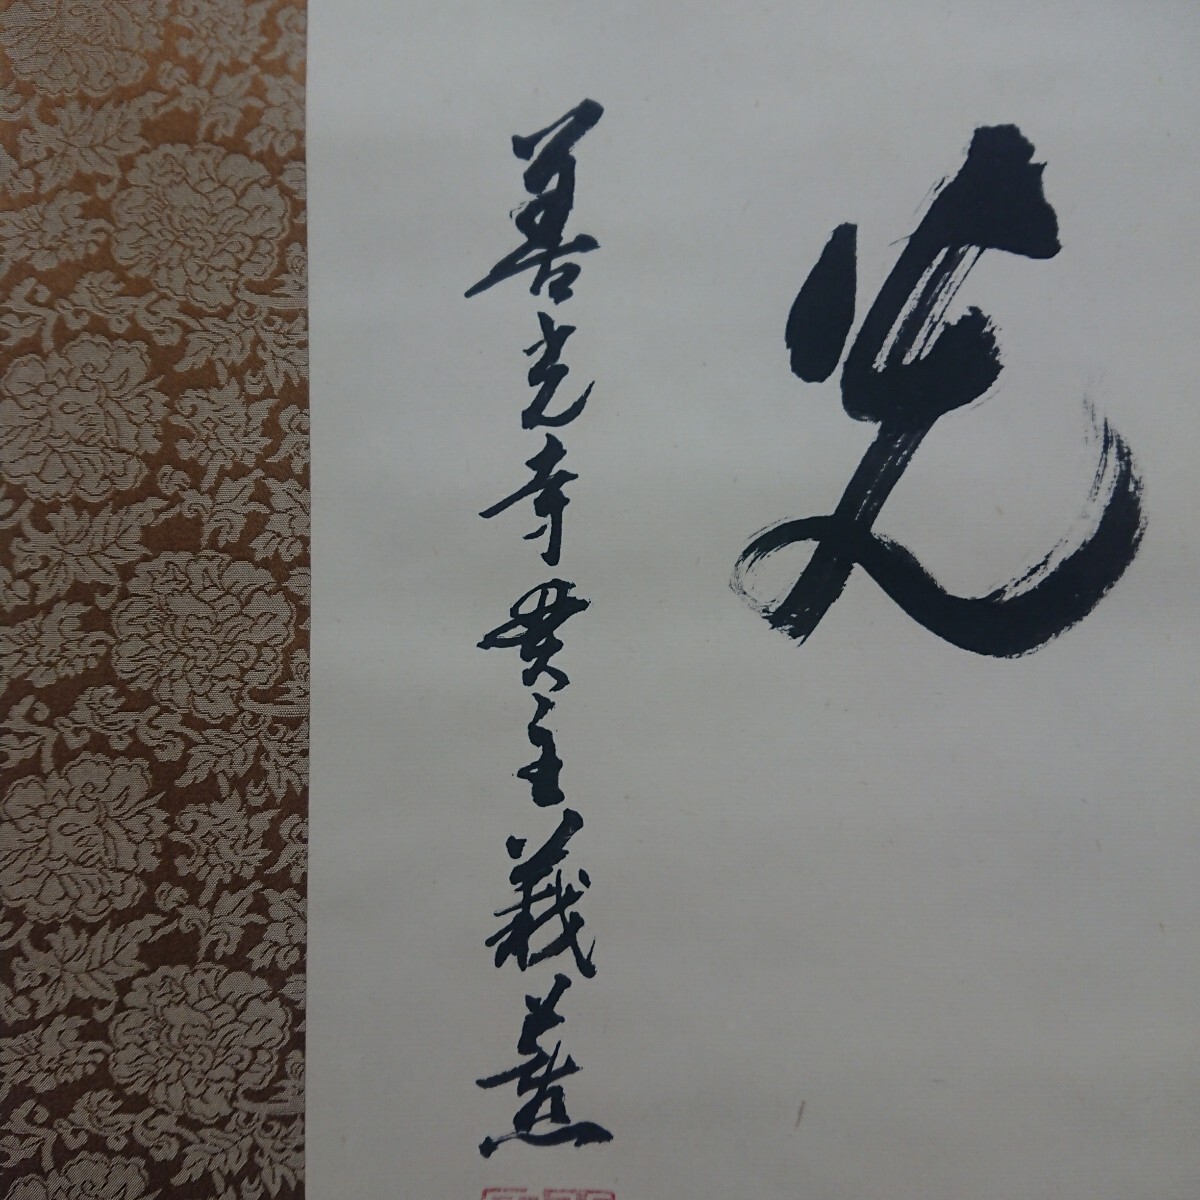 光
善光寺貫主義薫